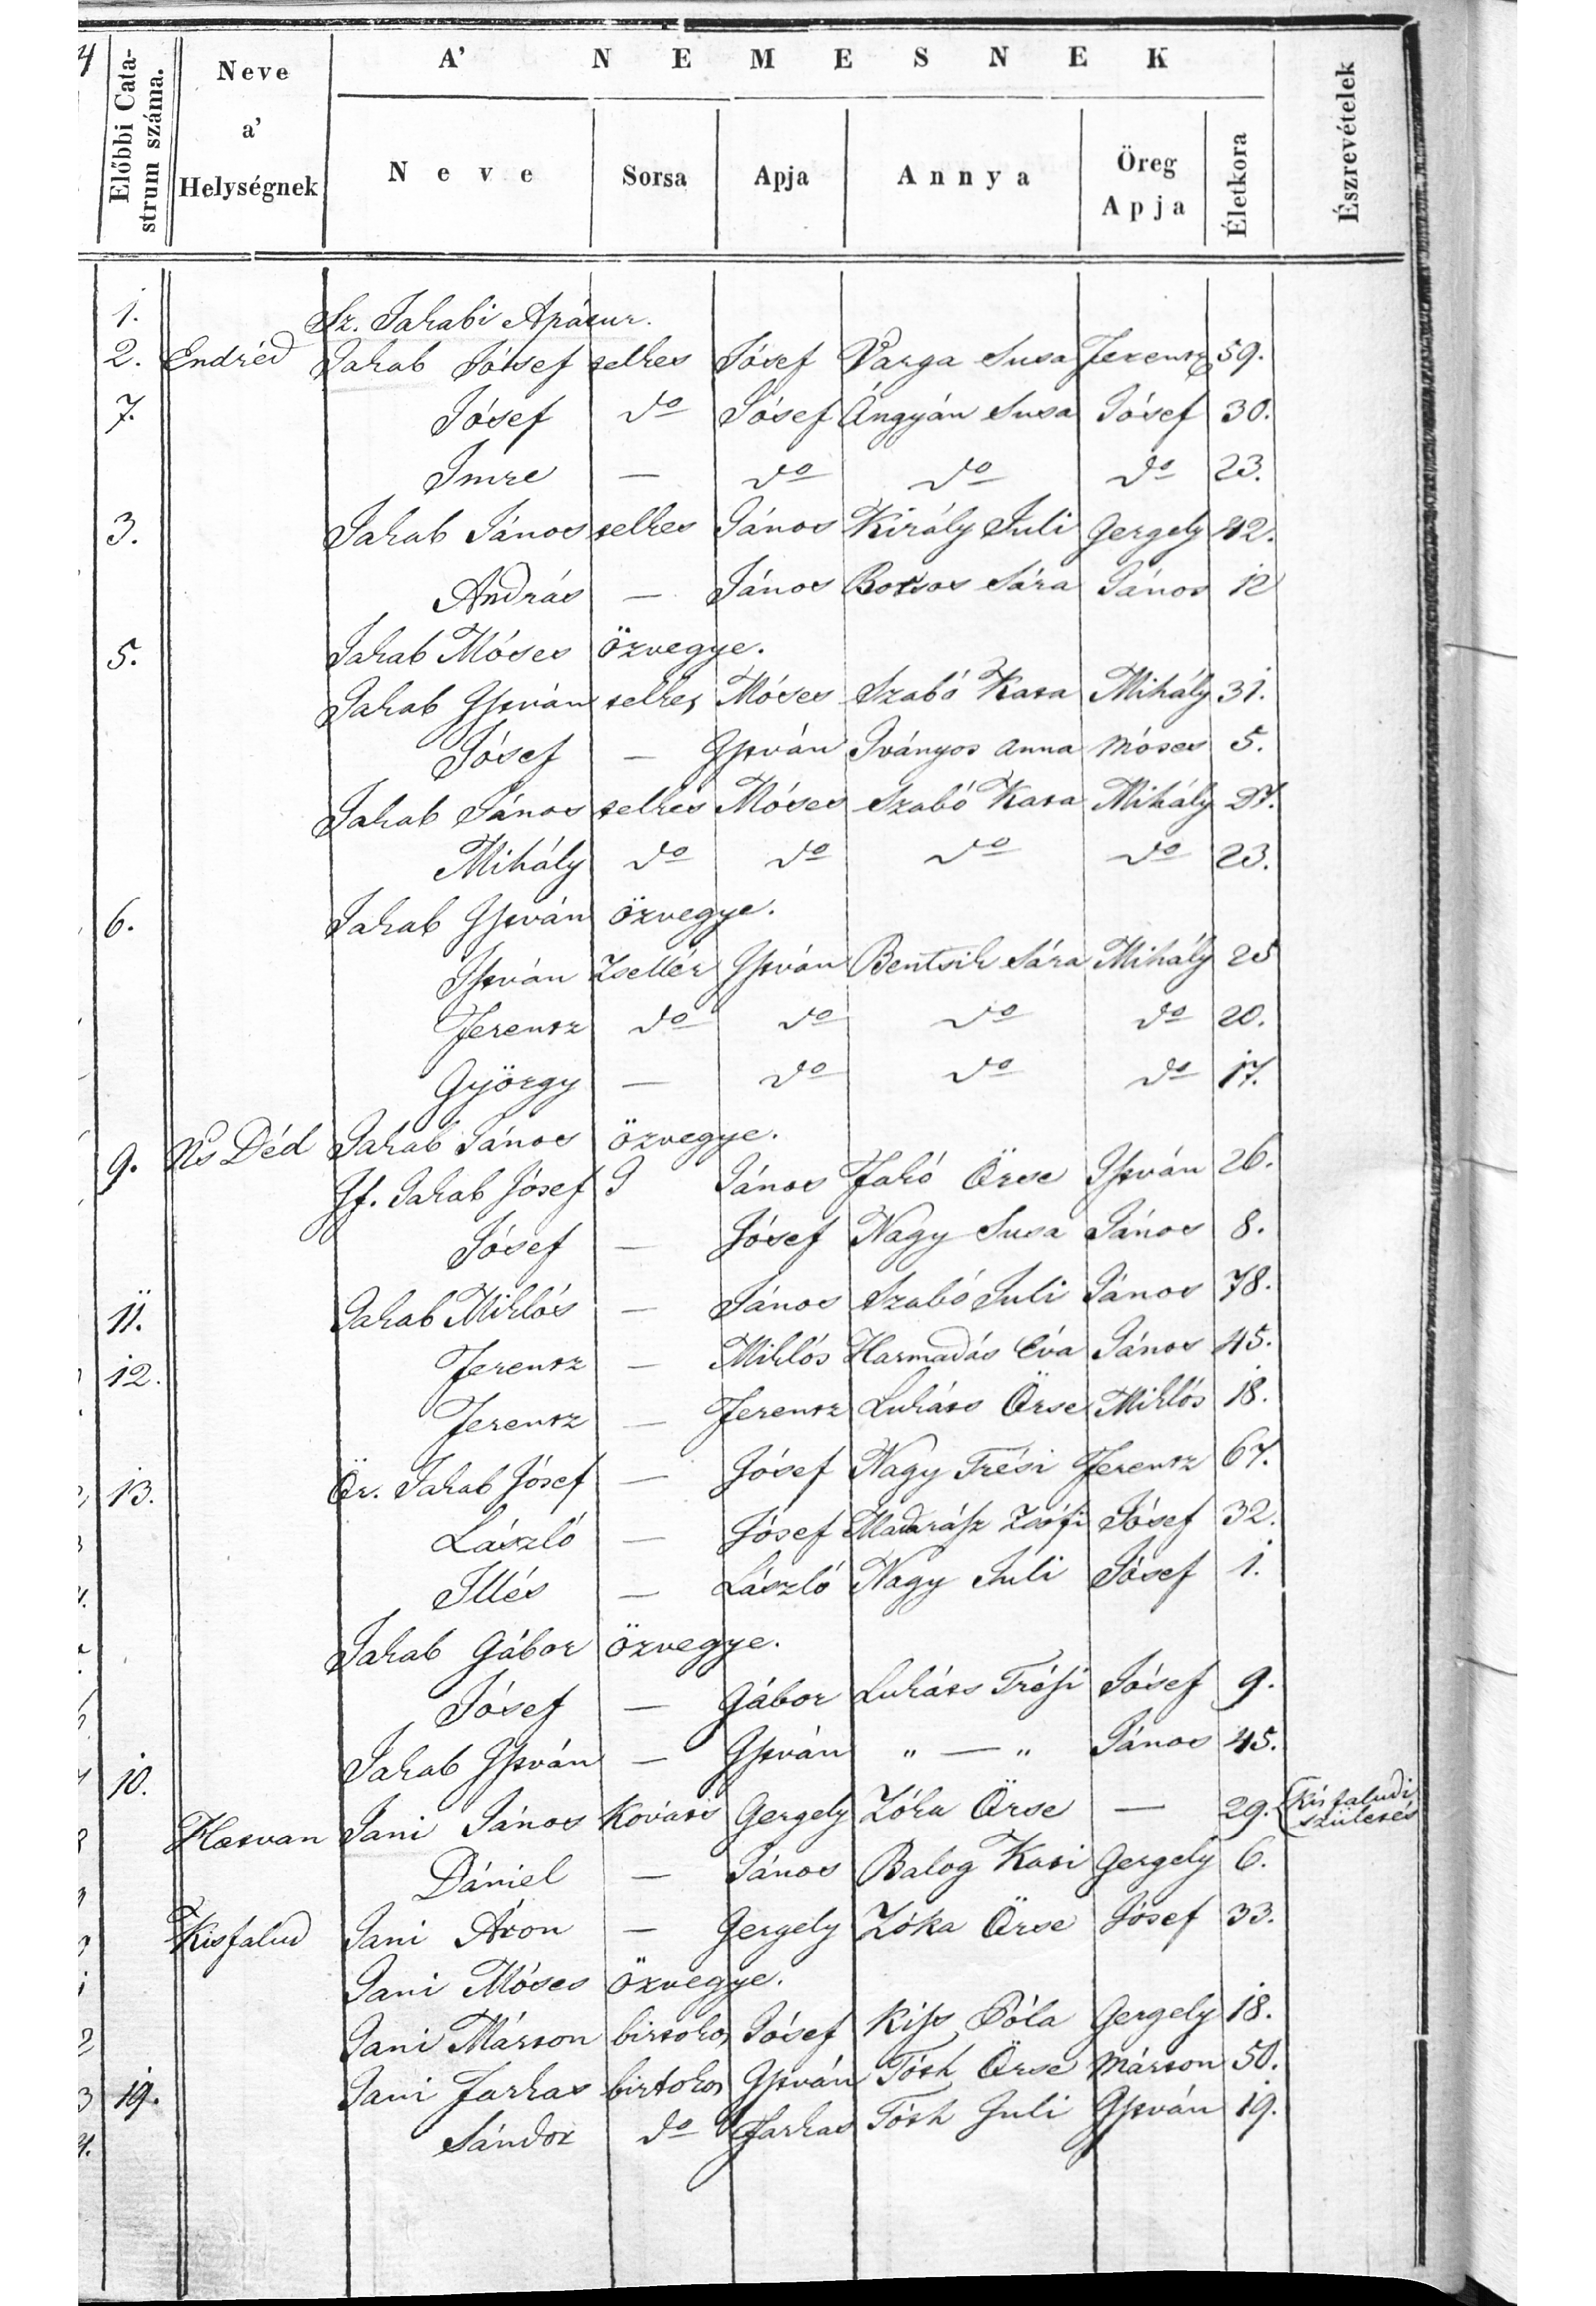 A' NEMESNEK
Előbbi Catastrum száma. Neve a' Helységnek Neve Sorsa Apja Annya Öreg Apja Életkora Észrevételek
1. Sz. Jakabi Apátur.
2. Endréd Jakab Jósef telkes Jósef Varga Susa Ferentz 59.
7. Jósef do Jósef Ángyán Susa Jósef 30.
Imre — do do do 23.
3. Jakab János telkes János Király Juli Gergely 42.
András — János Botsos Sára János 12
5. Jakab Móses özvegye.
Jakab István telkes Móses Szabó Kata Mihály 31.
Jósef — István Iványos Anna Móses 5.
Jakab János telkes Móses Szabó Kata Mihály 27.
Mihály do do do do 23.
6. Jakab István özvegye.
István Zsellér István Bentsik Sára Mihály 25
Ferentz do do do do 20.
György — do do do 17.
9. Ns Déd Jakab János özvegye.
If. Jakab Jósef J János Fakó Örse István 26.
Jósef — Jósef Nagy Susa János 8.
11. Jakab Miklós — János Szabó Juli János 78.
12. Ferentz — Miklós Harmadás Éva János 45.
Ferentz — Ferentz Lukáts Örse Miklós 18.
13. Ör. Jakab Jósef — Jósef Nagy Trési Ferentz 67.
László — Jósef Madarász Zsófi Jósef 32.
Illés — László Nagy Juli Jósef 1.
Jakab Gábor özvegye.
Jósef — Gábor Lukáts Trési Jósef 9.
10. Jakab István — István „ — „ János 45.
Hatvan Jani János Kováts Gergely Zóka Örse — 29. Kisfaludi születés
Dániel — János Balog Kati Gergely 6.
Kisfalud Jani Áron — Gergely Zóka Örse Jósef 33.
Jani Móses özvegye.
Jani Márton birtokos Jósef Kiss Póla Gergely 18.
19. Jani Farkas birtokos István Tóth Örse Márton 50.
Sándor do Farkas Tóth Juli István 19.